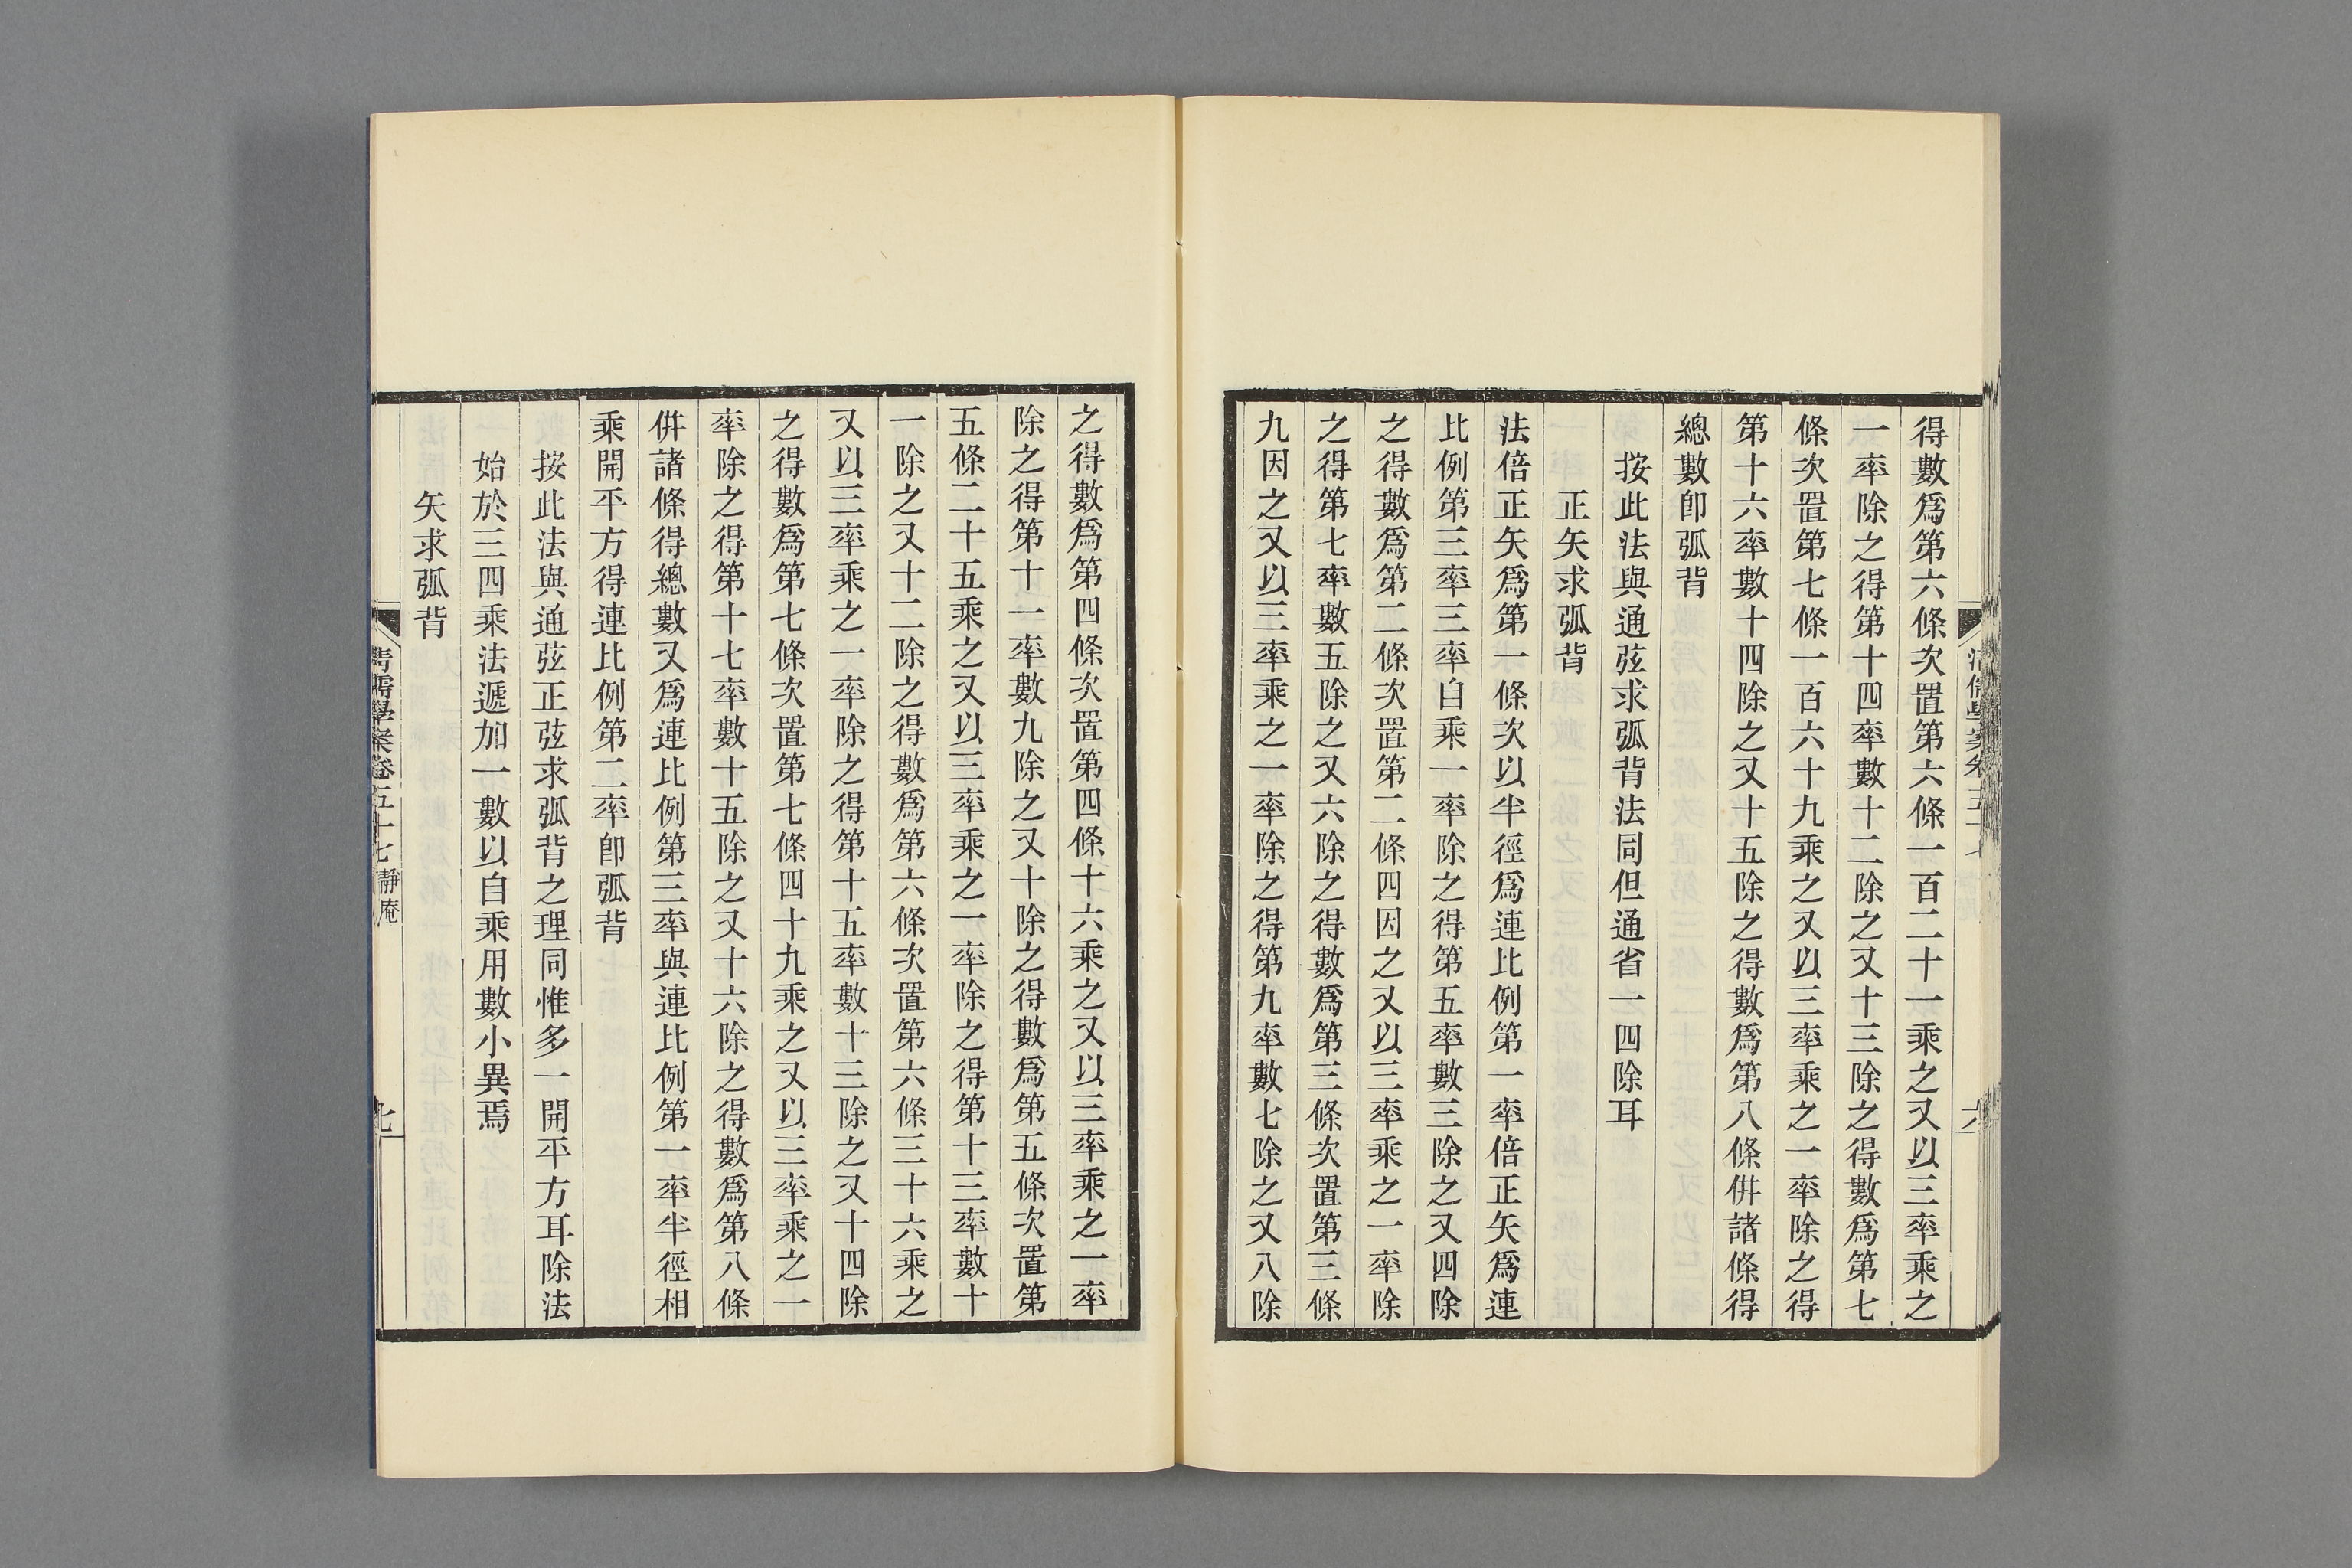 得數爲第六條次置第六條一百二十一乘之又以三率乘之
一率除之得第十四率數十二除之又十三除之得數爲第七
條次置第七條一百六十九乘之又以三率乘之一率除之得
第十六率數十四除之又十五除之得數爲第八條併諸條得
總數卽弧背
按此法與通弦求弧背法同但通省一四除耳
正矢求弧背
法倍正矢爲第一條次以半徑爲連比例第一率倍正矢爲連
比例第三率三率自乘一率除之得第五率數三除之又四除
之得數爲第二條次置第二條四因之又以三率乘之一率除
之得第七率數五除之又六除之得數爲第三條次置第三條
九因之又以三率乘之一率除之得第九率數七除之又八除
之得數爲第四條次置第四條十六乘之又以三率乘之一率
除之得第十一率數九除之又十除之得數爲第五條次置第
五條二十五乘之又以三率乘之一率除之得第十三率數十
一除之又十二除之得數爲第六條次置第六條三十六乘之
又以三率乘之一率除之得第十五率數十三除之又十四除
之得數爲第七條次置第七條四十九乘之又以三率乘之一
率除之得第十七率數十五除之又十六除之得數爲第八條
併諸條得總數又爲連比例第三率與連比例第一率半徑相
乘開平方得連比例第二率卽弧背
按此法與通弦正弦求弧背之理同惟多一開平方耳除法
始於三四乘法遞加一數以自乘用數小異焉
矢求弧背
清儒學案卷五十七 靜庵
七